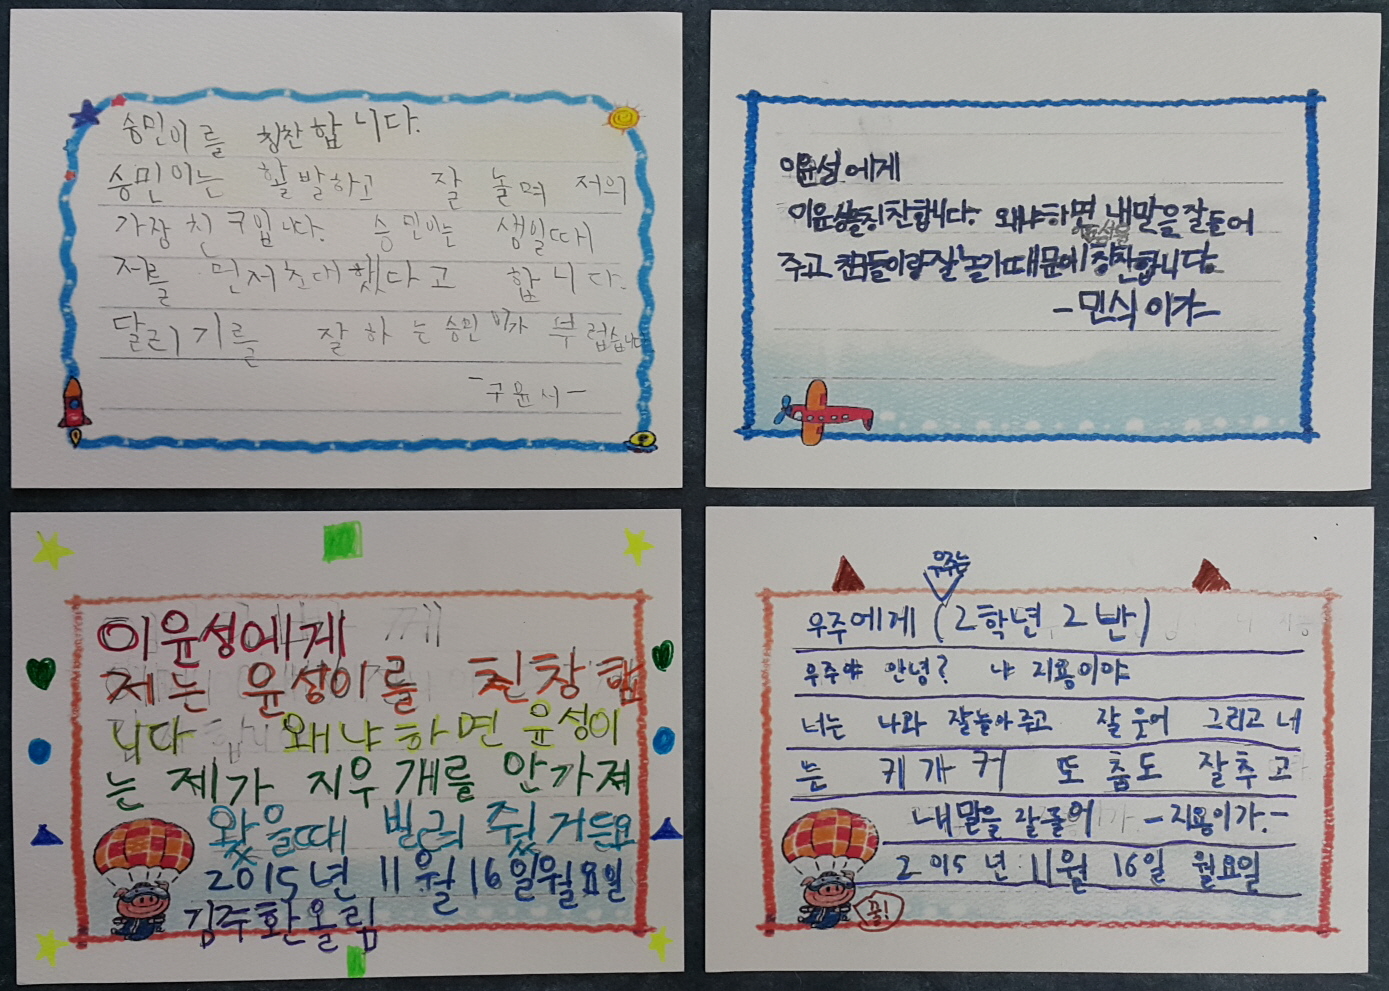 승민이를 칭찬합니다.
승민이는 활발하고 잘 놀며 저의
가장 친구입니다. 승민이는 생일때
저를 먼저초대했다고 합니다.
달리기를 잘하는승민이가 부럽습니다
-구윤서-
이윤성에게
이윤성을칭찬합니다. 왜냐하면 내말을잘들어
주고 친구들이랑잘놀기때문에 칭찬합니다.
-민식이가-
이윤성에게
저는 윤성이를 친창합
니다 왜냐하면 윤성이
는 제가 지우개를 안가져
왔을때 빌려줬거든요
2015년 11월16일월요일
김주환올림
우주는
우주에게 (2학년 2반)
우주야 안녕? 나 지용이야
너는 나와 잘놀아주고 잘웃어 그리고 네
는 키가커 또 춤도 잘추고
내말을 잘들어 -지용이가.-
2015년 11월 16일 월요일
꿀!